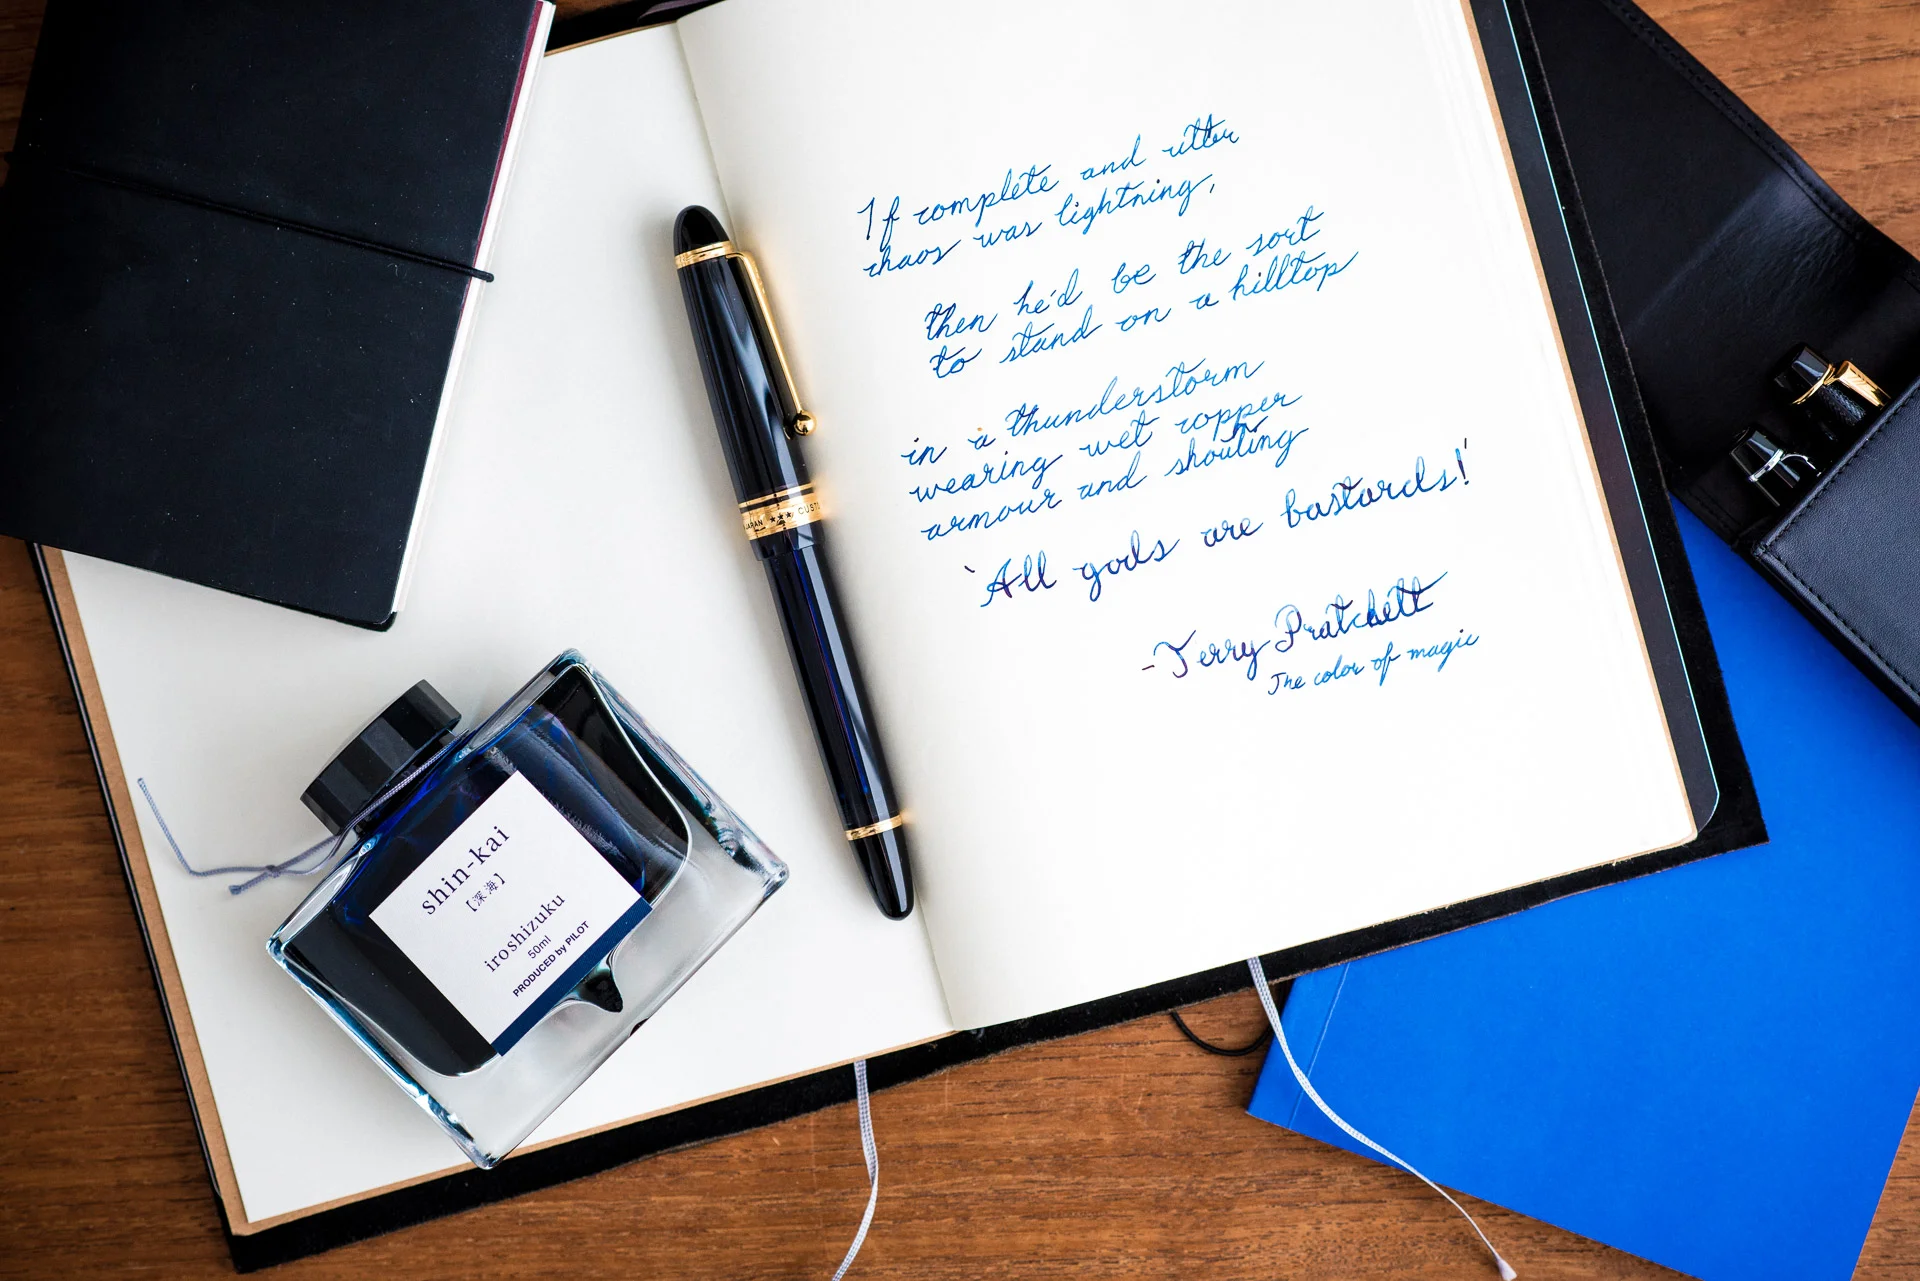 If complete and utter
chaos was lightning,
then he'd be the sort
to stand on a hilltop
in a thunderstorm
wearing wet copper
armour and shouting
'All gods are bastards!'
-Terry Pratchett
The color of magic
JAPAN ★★★ CUSTO
shin-kai
【深海】
iroshizuku
50ml
PRODUCED by PILOT